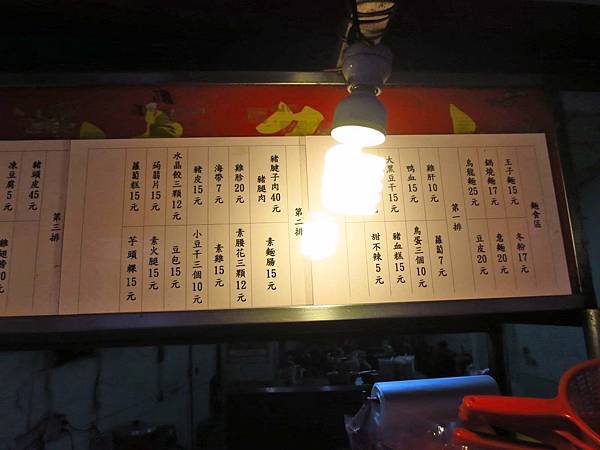 麵食區
王子麵15元
鍋燒麵17元
烏龍麵25元
冬粉17元
意麵20元
豆皮20元
第一排
雞肝10元
鴨血15元
大黑豆干15元
蘿蔔7元
鳥蛋三個10元
豬血糕15元
甜不辣5元
第二排
豬腱子肉40元
豬腿肉
雞胗20元
海帶7元
豬皮15元
水晶餃三顆12元
蒟蒻片15元
蘿蔔糕15元
素麵腸15元
素腰花三顆12元
素雞15元
小豆干三個10元
豆包15元
素火腿15元
芋頭粿15元
第三排
豬頭皮45元
凍豆腐5元